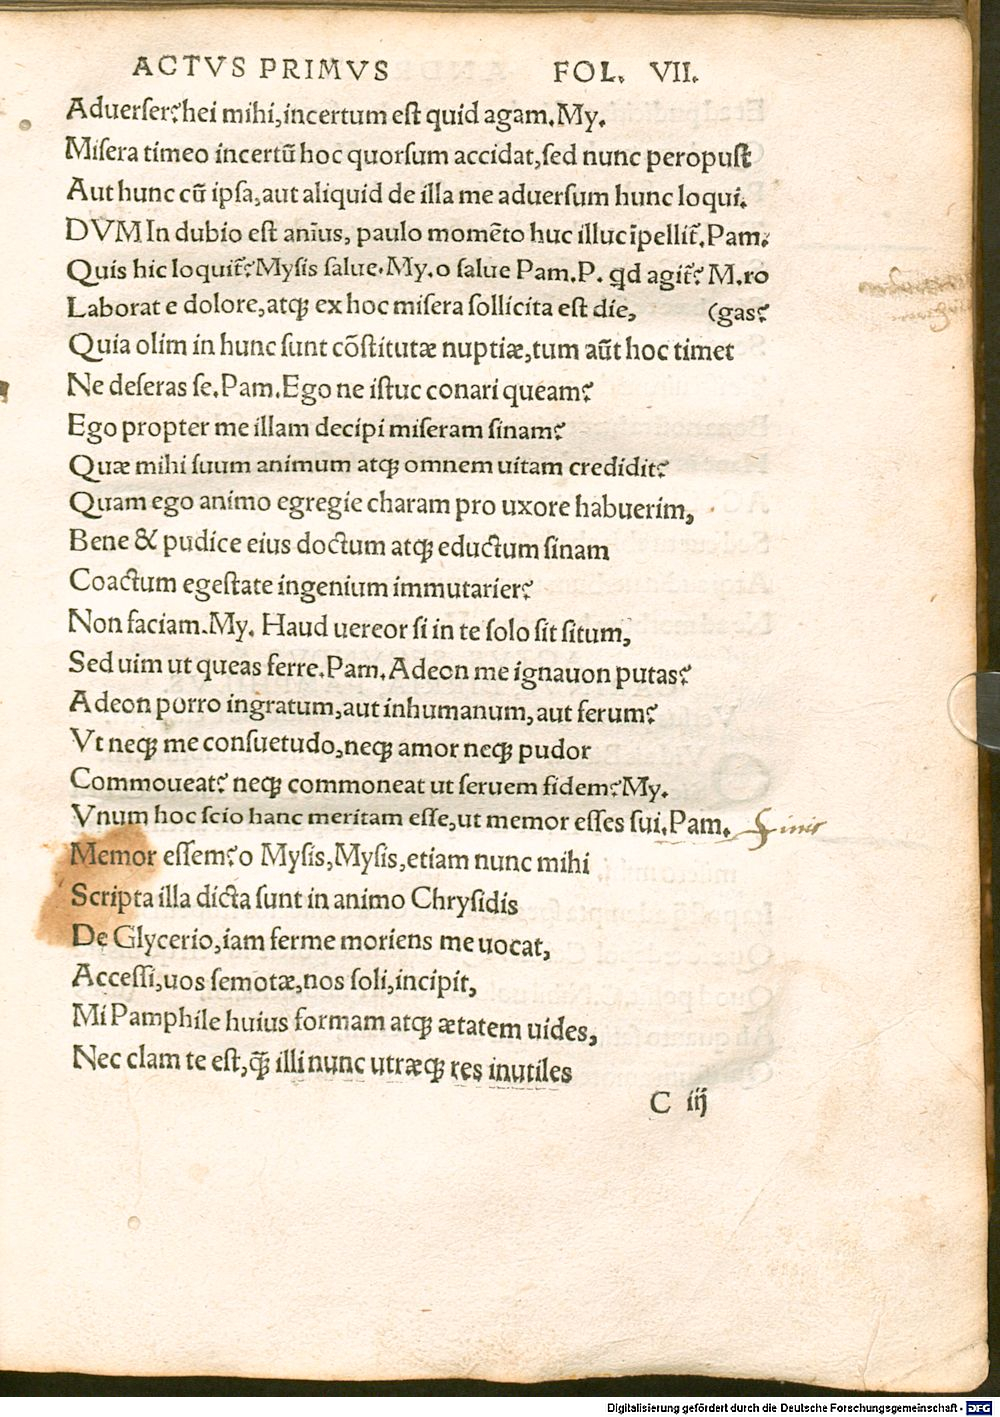 ACTVS PRIMVS FOL. VII.
Aduerſer? hei mihi, incertum eſt quid agam. My.
Miſera timeo incertū hoc quorſum accidat, ſed nunc peropuſt
Aut hunc cū ipſa, aut aliquid de illa me aduerſum hunc loqui.
DVM In dubio eſt aniūs, paulo momēto huc illuc īpellit̃. Pam.
Quis hic loquit̃? Myſis ſalue. My. o ſalue Pam. P. qd agit̃? M. ro
Laborat e dolore, atq; ex hoc miſera ſollicita eſt die, (gas?
Quia olim in hunc ſunt cōſtitutæ nuptiæ, tum aūt hoc timet
Ne deſeras ſe. Pam. Ego ne iſtuc conari queam?
Ego propter me illam decipi miſeram ſinam?
Quæ mihi ſuum animum atq; omnem uitam credidit?
Quam ego animo egregie charam pro uxore habuerim,
Bene & pudice eius doctum atq; eductum ſinam
Coactum egeſtate ingenium immutarier?
Non faciam. My. Haud uereor ſi in te ſolo ſit ſitum,
Sed uim ut queas ferre. Pam. Adeon me ignauon putas?
Adeon porro ingratum, aut inhumanum, aut ferum?
Vt neq; me conſuetudo, neq; amor neq; pudor
Commoueat? neq; commoneat ut ſeruem fidem? My.
Vnum hoc ſcio hanc meritam eſſe, ut memor eſſes ſui. Pam.
Memor eſſem? o Myſis, Myſis, etiam nunc mihi
Scripta illa dicta ſunt in animo Chryſidis
De Glycerio, iam ferme moriens me uocat,
Acceſſi, uos ſemotæ, nos ſoli, incipit,
Mi Pamphile huius formam atq; ætatem uides,
Nec clam te eſt, q̄; illi nunc utræq; res inutiles
C iij
Digitalisierung gefördert durch die Deutsche Forschungsgemeinschaft - DFG